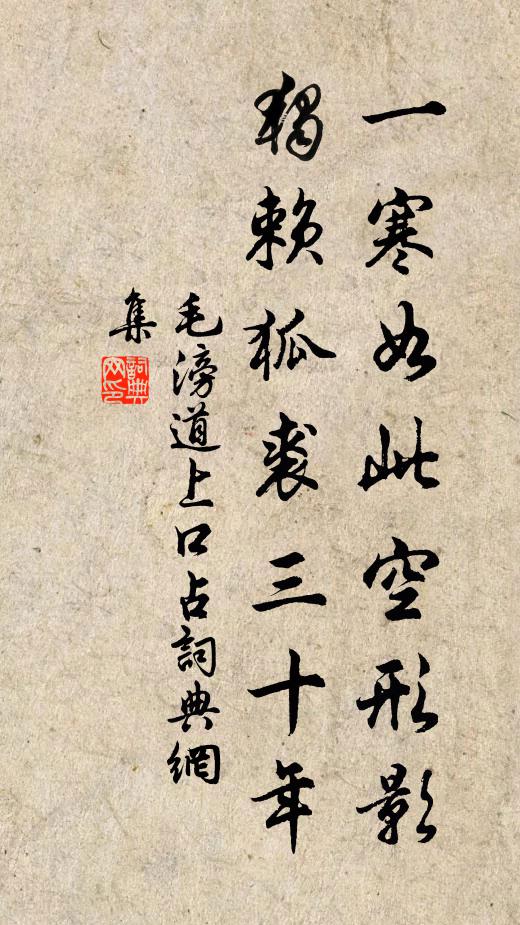 一寒如此空形影
獨賴狐裘三十年
毛滂道上口占詞典網
集
詞典
网印